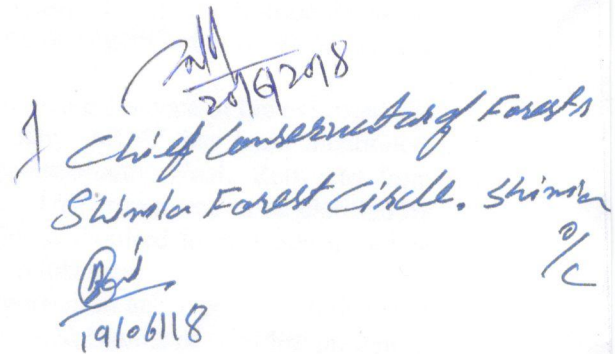 20/6/2018
Chief Conservator of Forests
Shimla Forest Circle. Shimla
O/C
19/06/18